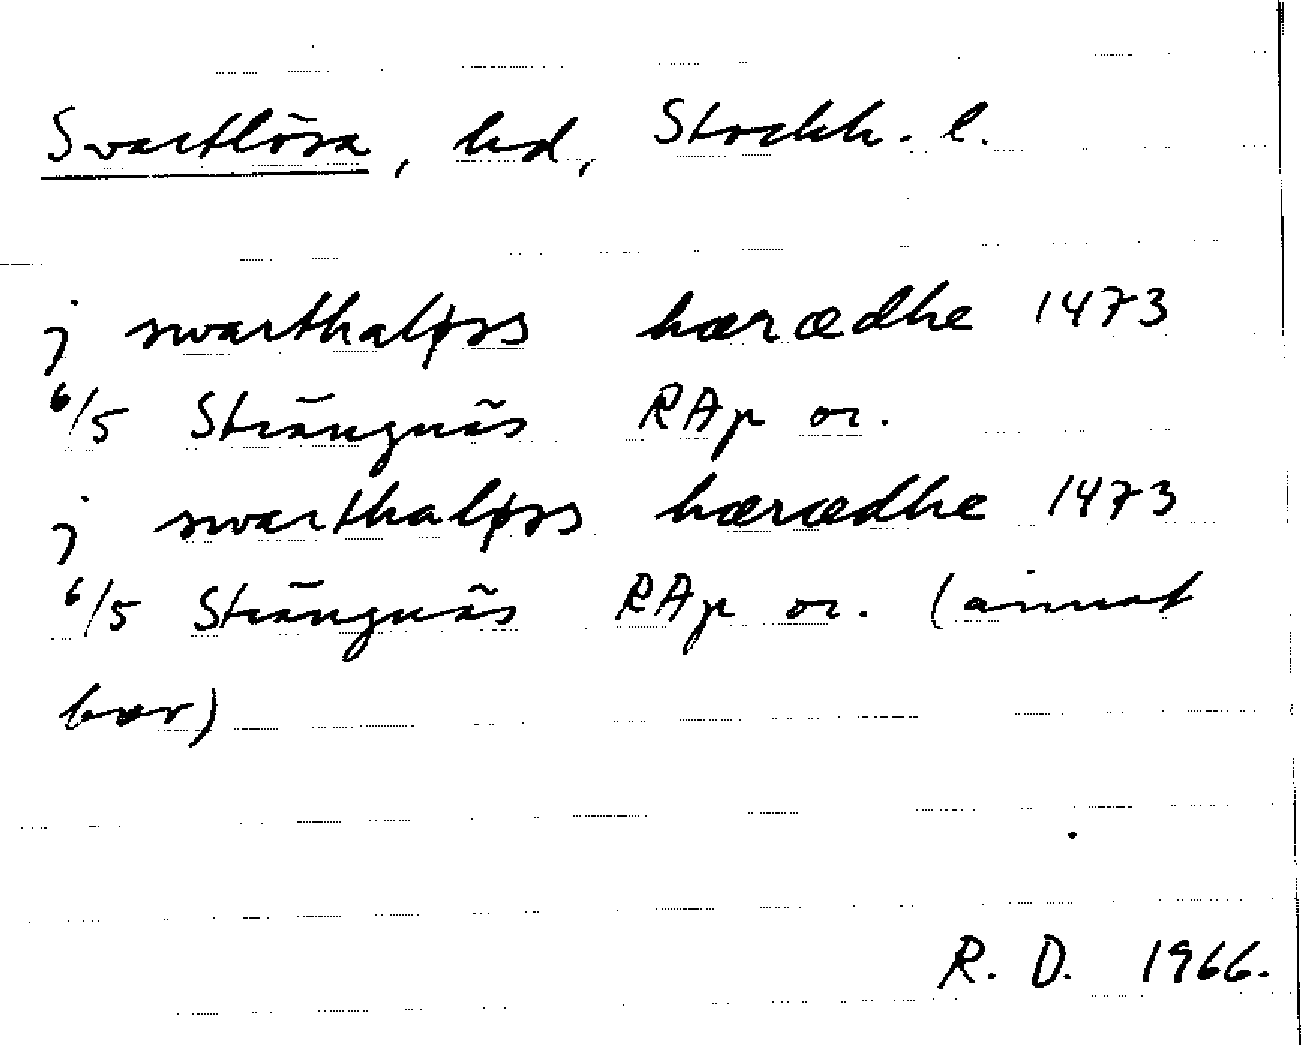 Svartlösa, hd, Stockh. l.
j swarthaløss hærædhe 1473
6/5 Strängnäs RAp or.
j swarthaløss hærædhe 1473
6/5 Strängnäs RAp or. (annat
brev)
R. D. 1966.